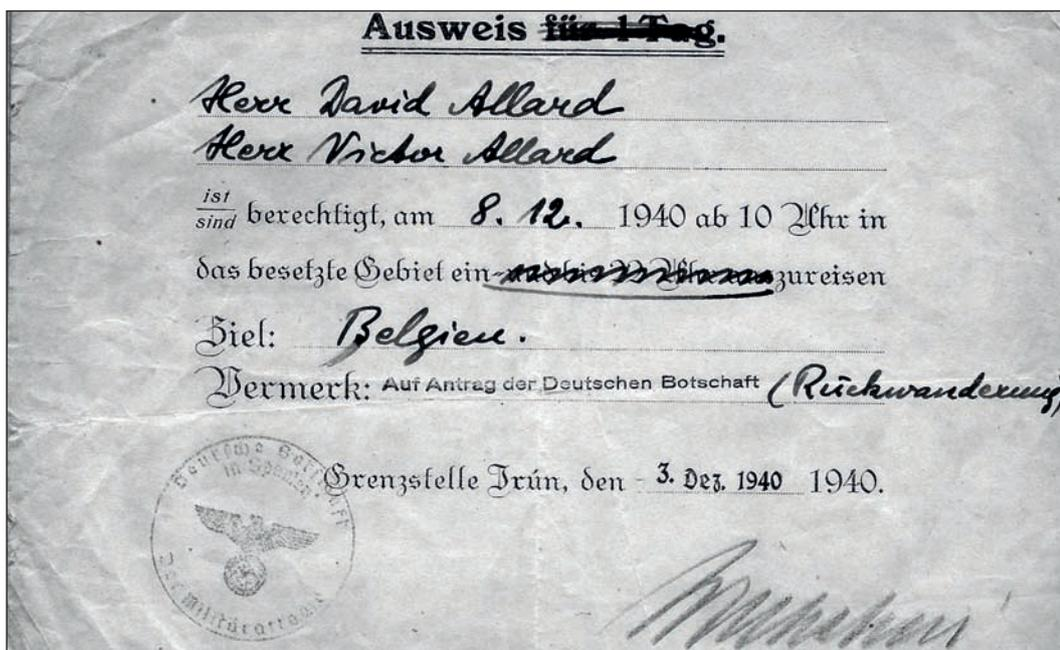 Ausweis für 1 Tag.
Herr David Allard
Herr Victor Allard
ist
sind berechtigt, am 8. 12. 1940 ab 10 Uhr in
das besetzte Gebiet ein- zureisen
Ziel: Belgien.
Vermerk: Auf Antrag der Deutschen Botschaft (Rückwanderung)
Grenzstelle Irún, den 3. Dez. 1940 1940.
Deutsche Botschaft
in Spanien
Der Militärattaché